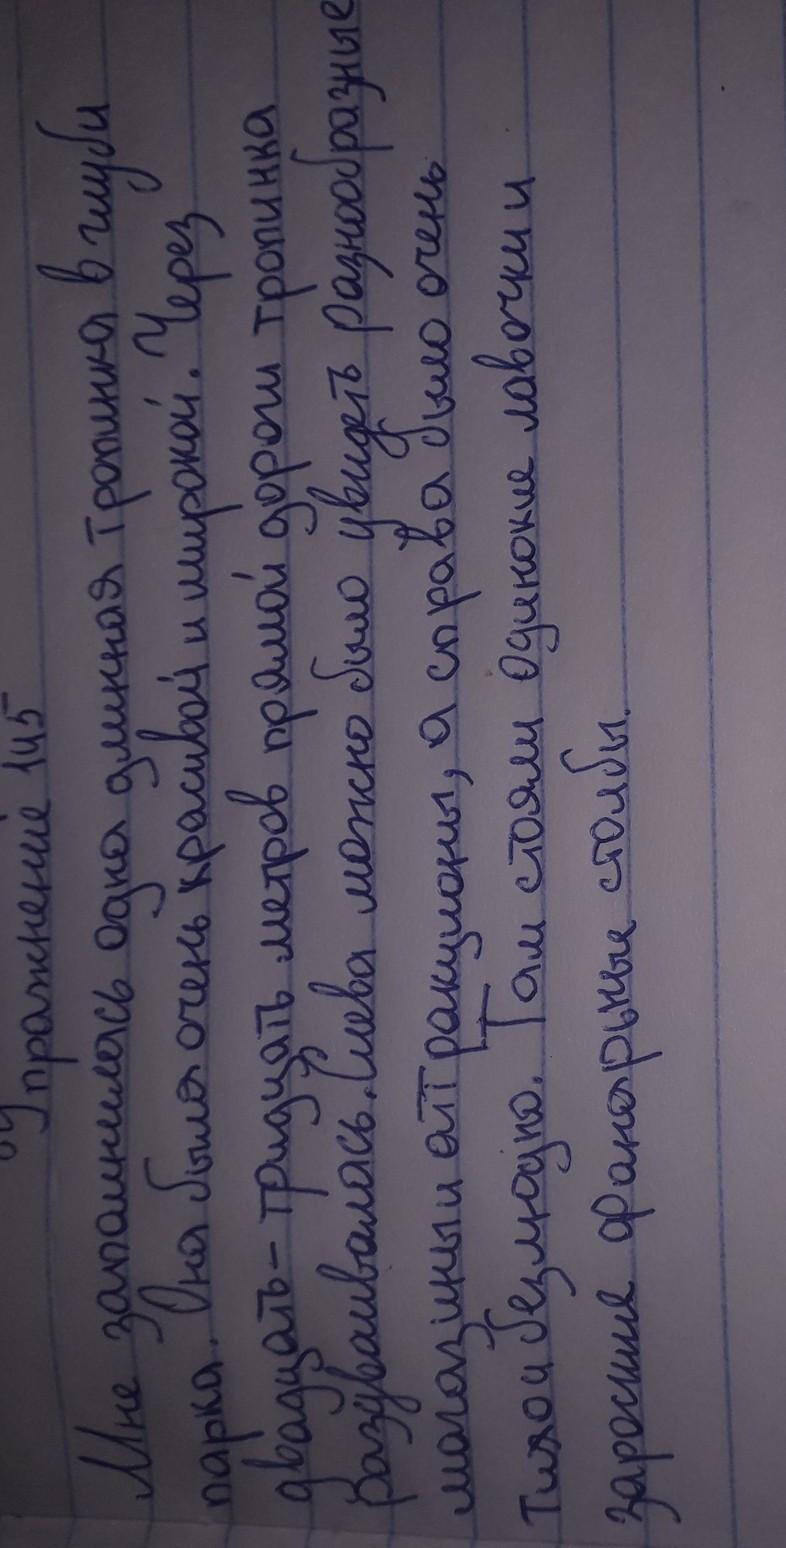 Упражнение 145
Мне запомнилась одна длинная тропинка в глуби
парка. Она была очень красивой и широкой. Через
двадцать-тридцать метров прямой дороги тропинка
раздваивалась. Слева можно было увидеть разнообразные
магазины и аттракционы, а справа было очень
тихо и безлюдно. Там стояли одинокие лавочки и
заросшие фонарные столбы.